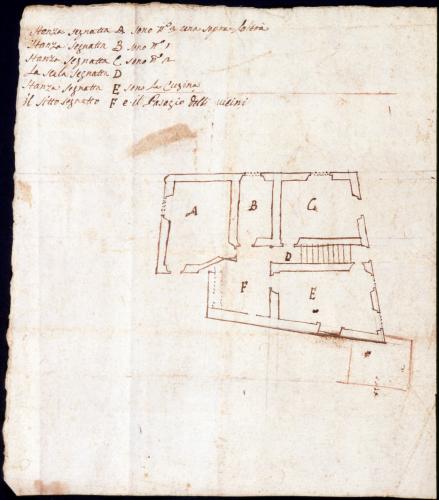 Stanza segnatta A sono n.º 3 una sopra l'altra
Stanza Segnatta B sono nº 1
Stanza Segnatta C sono nº 2
La Scala Segnatta D
Stanza Segnatta E sono La Cuzina
il Sitto Segnatto F e il Pasagio delli vicini
A
B
C
D
F
E